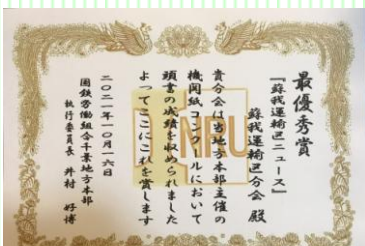 最優秀賞
『蘇我運輸区ニュース』
蘇我運輸区分会 殿
貴分会は当地方本部主催の
機関紙コンクールにおいて
頭書の成績を収められました
よってここにこれを賞します
二〇二一年一〇月一六日
国鉄労働組合千葉地方本部
執行委員長 井村 好博
NRU